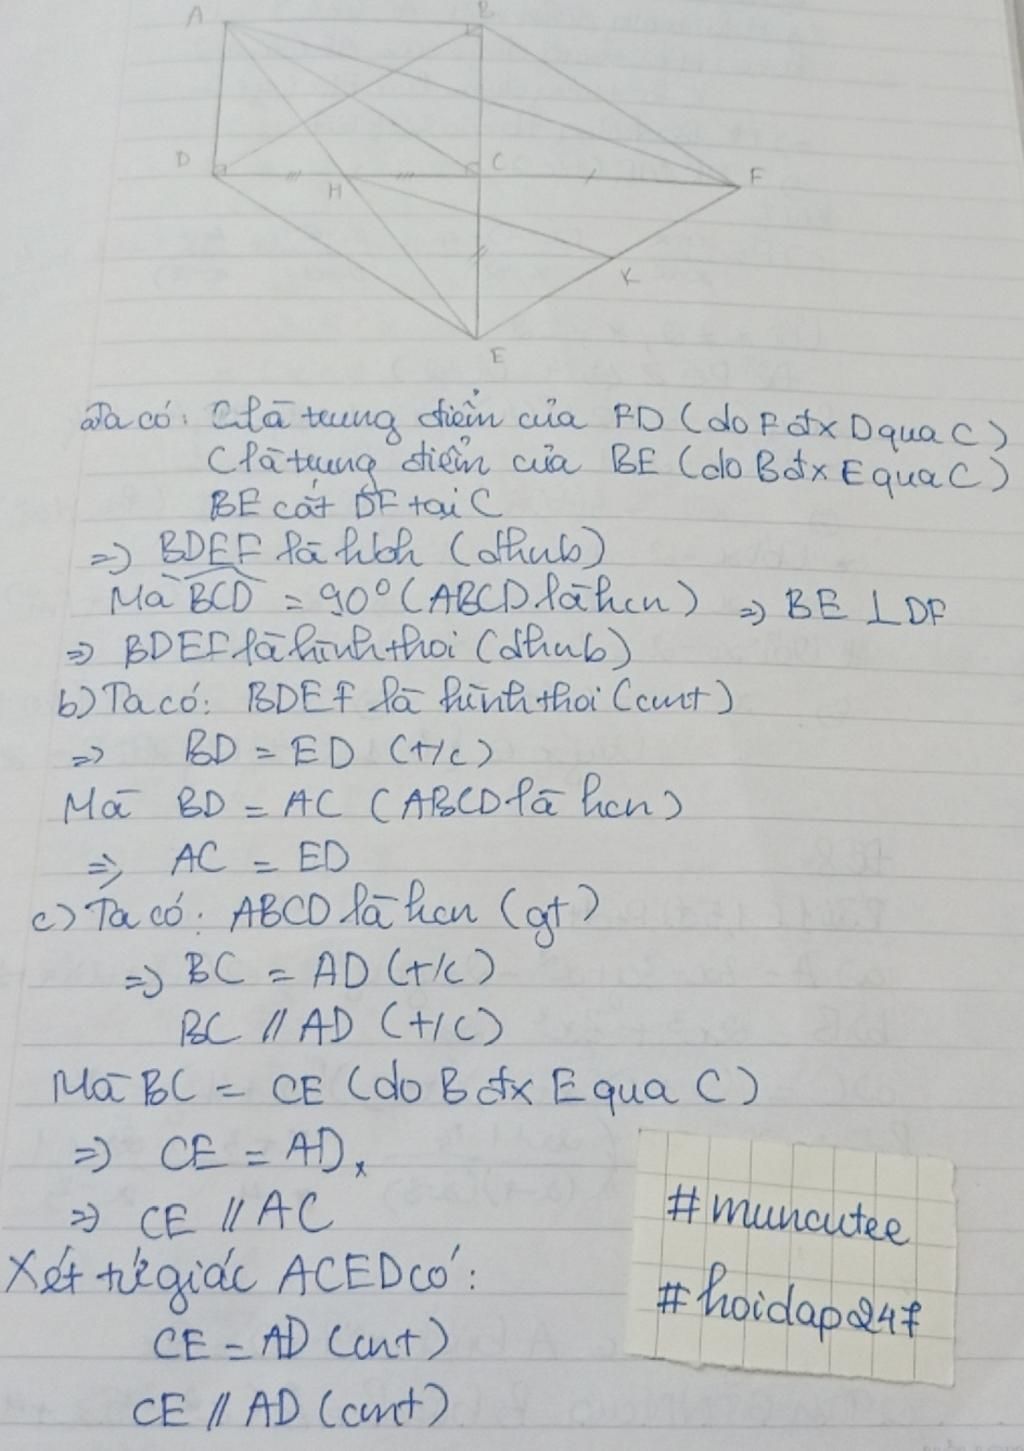 A
B
D
C
F
H
K
E
a) Ta có: C là trung điểm của FD (do F đx D qua C)
C là trung điểm của BE (do B đx E qua C)
BE cắt DF tại C
=> BDEF là hbh (dhnb)
Mà BCD = 90° (ABCD là hcn) => BE ⊥ DF
=> BDEF là hình thoi (dhnb)
b) Ta có: BDEF là hình thoi (cmt)
=> BD = ED (t/c)
Mà BD = AC (ABCD là hcn)
=> AC = ED
c) Ta có: ABCD là hcn (gt)
=> BC = AD (t/c)
BC // AD (t/c)
Mà BC = CE (do B đx E qua C)
=> CE = AD,
=> CE // AC
Xét tứ giác ACED có:
CE = AD (cmt)
CE // AD (cmt)
#muncutee
#hoidap247